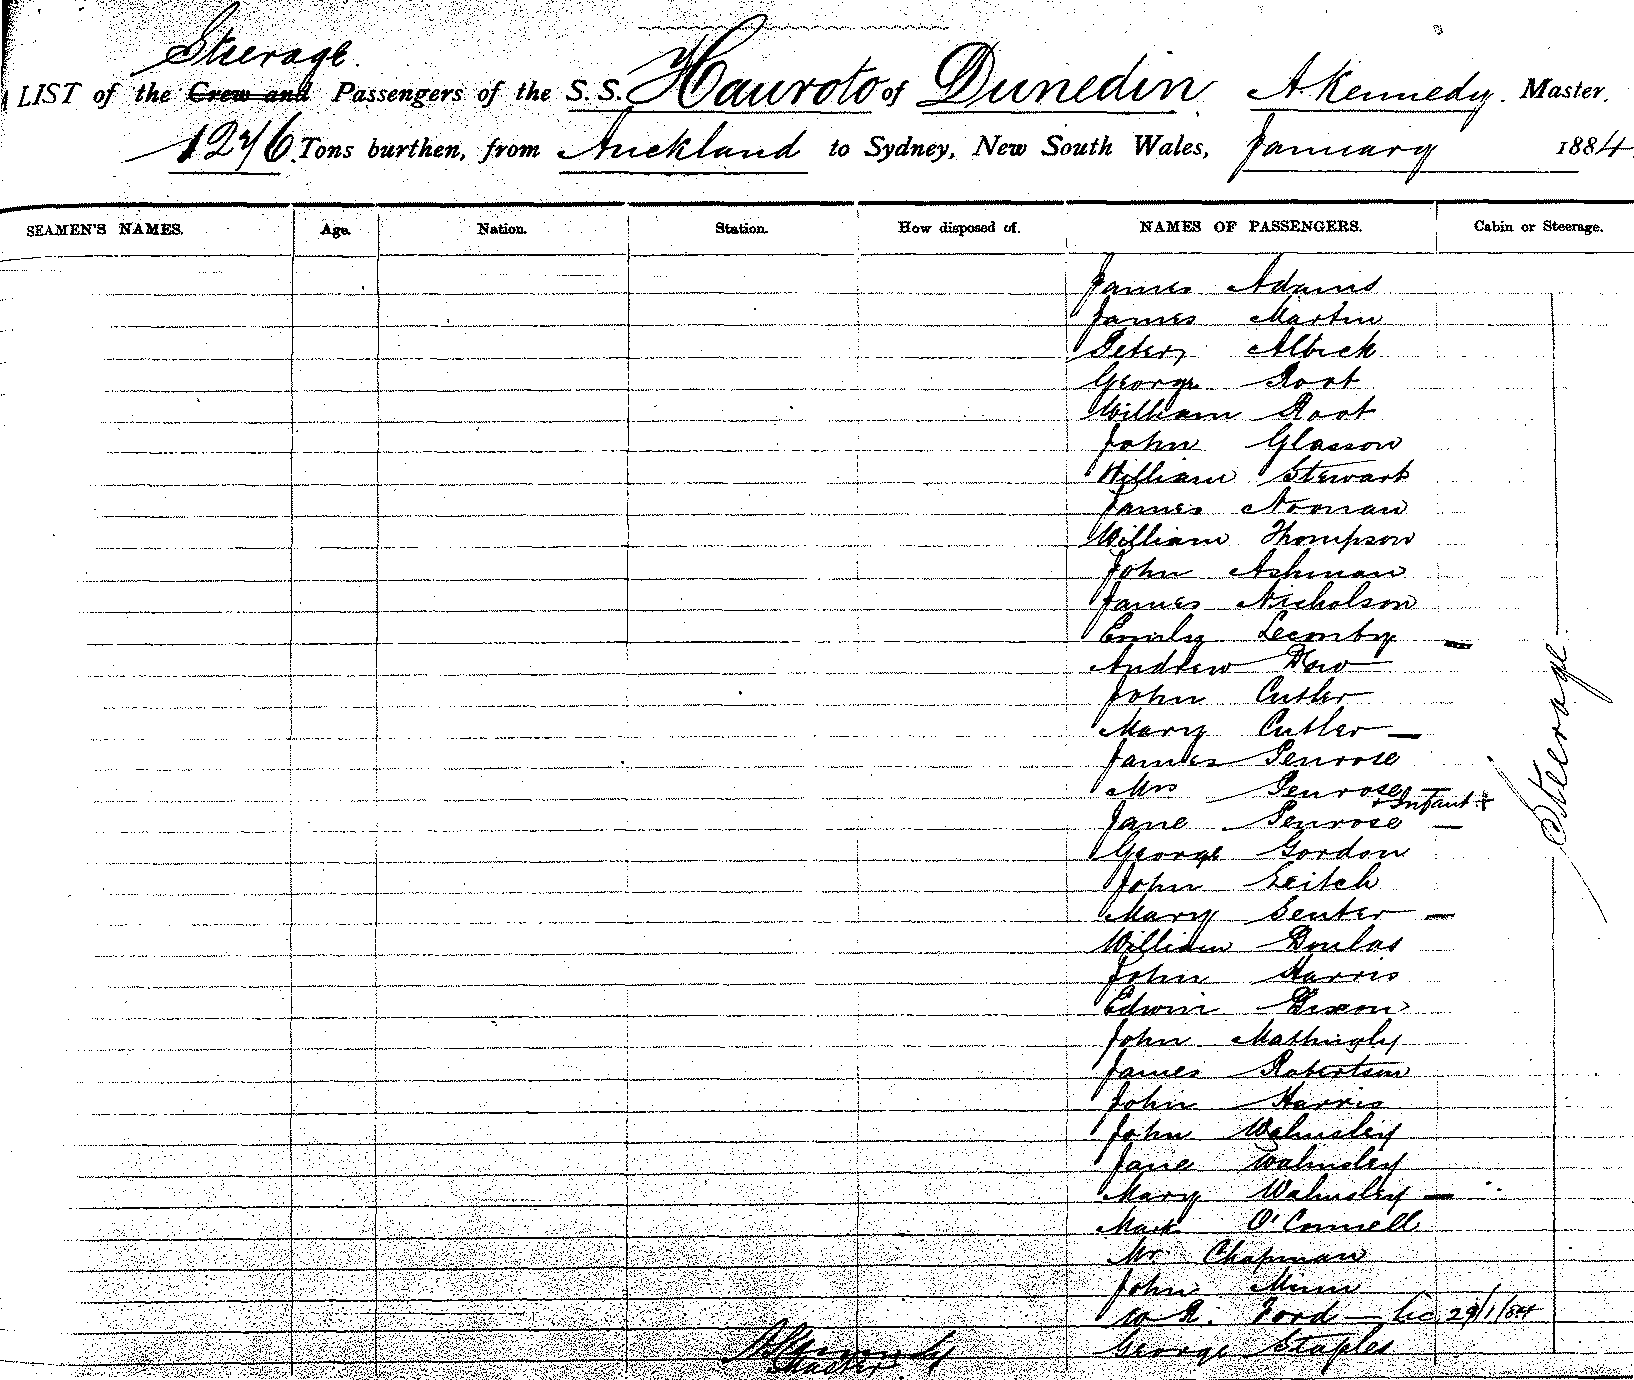 Steerage.
LIST of the Crew and Passengers of the S.S. Hauroto of Dunedin A Kennedy. Master,
1276 Tons burthen, from Auckland to Sydney, New South Wales, January 1884
SEAMEN'S NAMES. Age. Nation. Station. How disposed of. NAMES OF PASSENGERS. Cabin or Steerage.
James Adams
James Martin
Peter Albeck
George Root
William Root
John Glasson
William Stewart
James Noonan
William Thompson
John Ashman
James Nicholson
Emily Lecomby
Andrew Dow
John Cutler
Mary Cutler
James Penrose
Mrs Penrose
+ Infant
Jane Penrose
Steerage
George Gordon
John Leitch
Mary Senter
William Doulas
John Harris
Edwin Dixon
John Mathingly
James Robertson
John Harris
John Walmsley
Jane Walmsley
Mary Walmsley
Mark O'Connell
Mr Chapman
John Munn
W R. Ford 29/1/84
George Staples
A Kennedy
Master